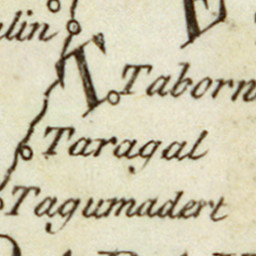 alin
T
E
Taborn
Taragal
Tagumadert